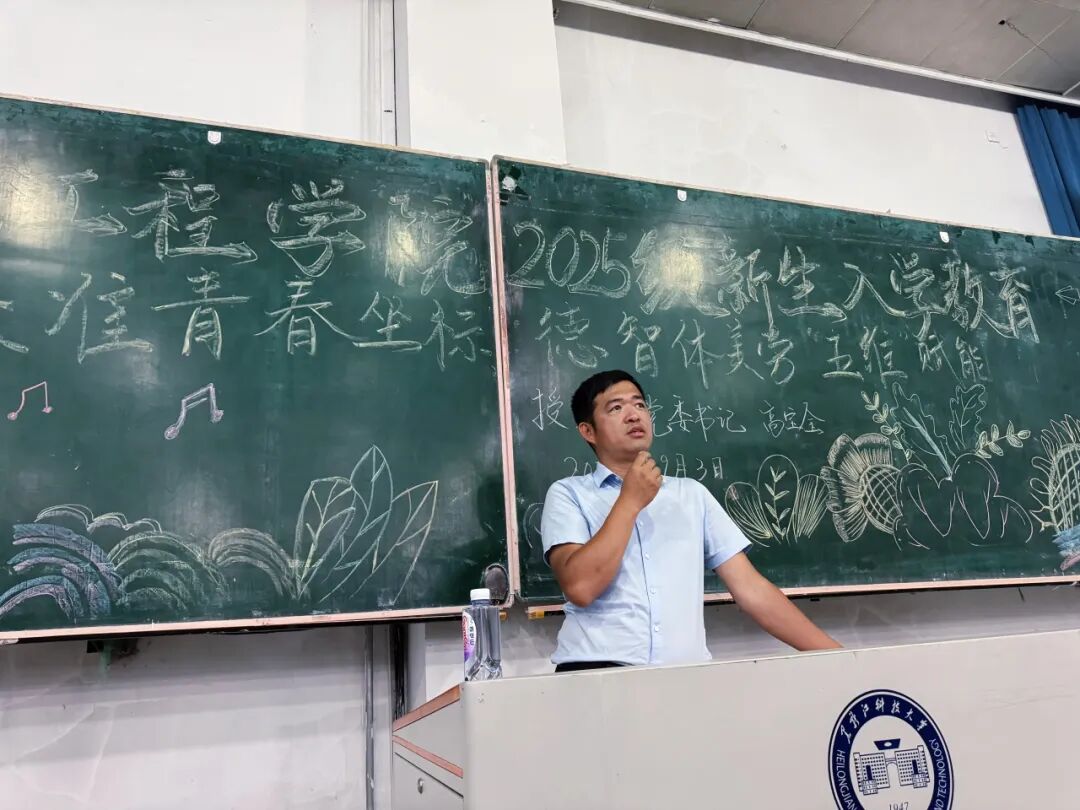 工程学院
准青春坐标
2025级新生入学教育
德智体美劳"五维"赋能
授
党委书记 高定全
月3日
黑龙江科技大学
HEILONGJIAN
ND TECHNOLOGY
1947